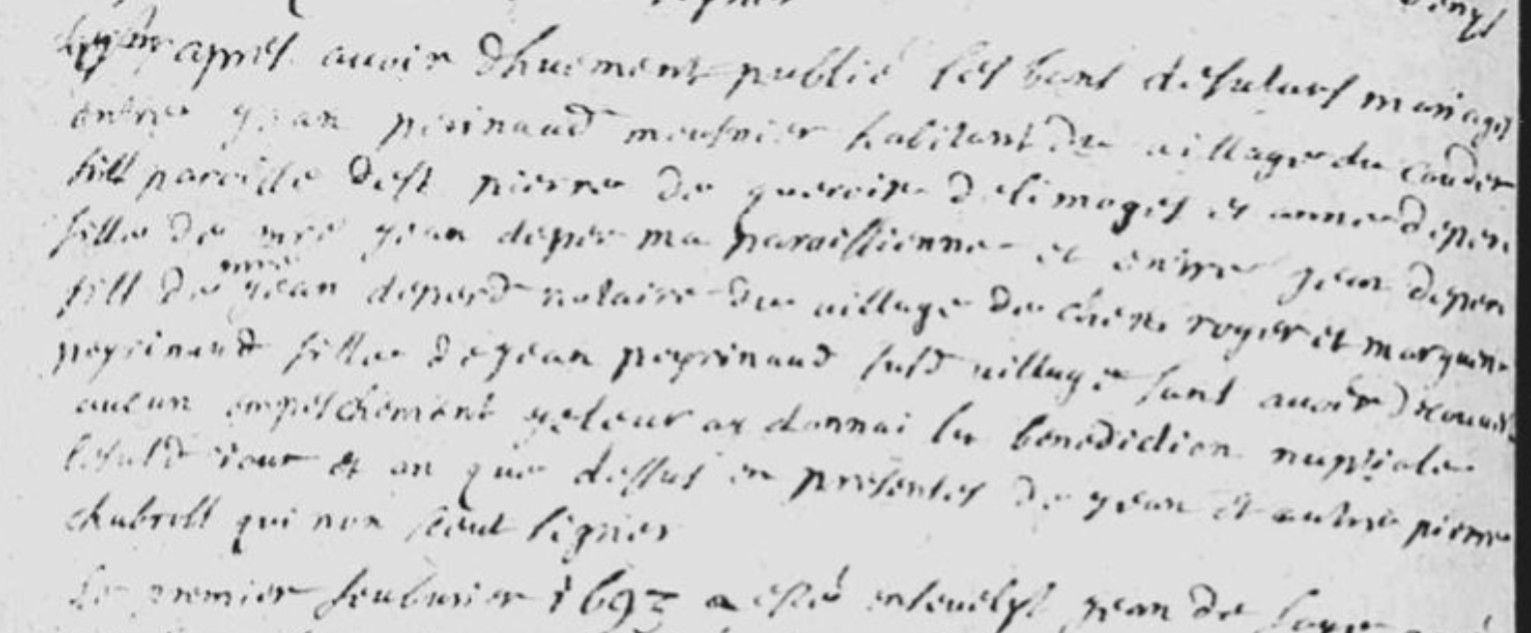 apprès avoir dhuement publié les bans desfuturs mariages
entre Jean perinaud meusnier habitant du village du
fill paroisse dest pierre de queroire delimoges et anne deper
fille de mre Jean deper ma paroissienne et entre Jean deper
fill de mre Jean deperd notaire du village de chere roger et marguer
peyrinaud fille de Jean peyrinaud susd village sant avoir decouver
aucun empeschement Je leur ay donnai la benediction nuptiale
lesusd iour et an que dessus en presentes de Jean et autre pierre
chabroll qui non sceut signer
Le premier feubvrier 1693 a esté ensevelyt Jean de